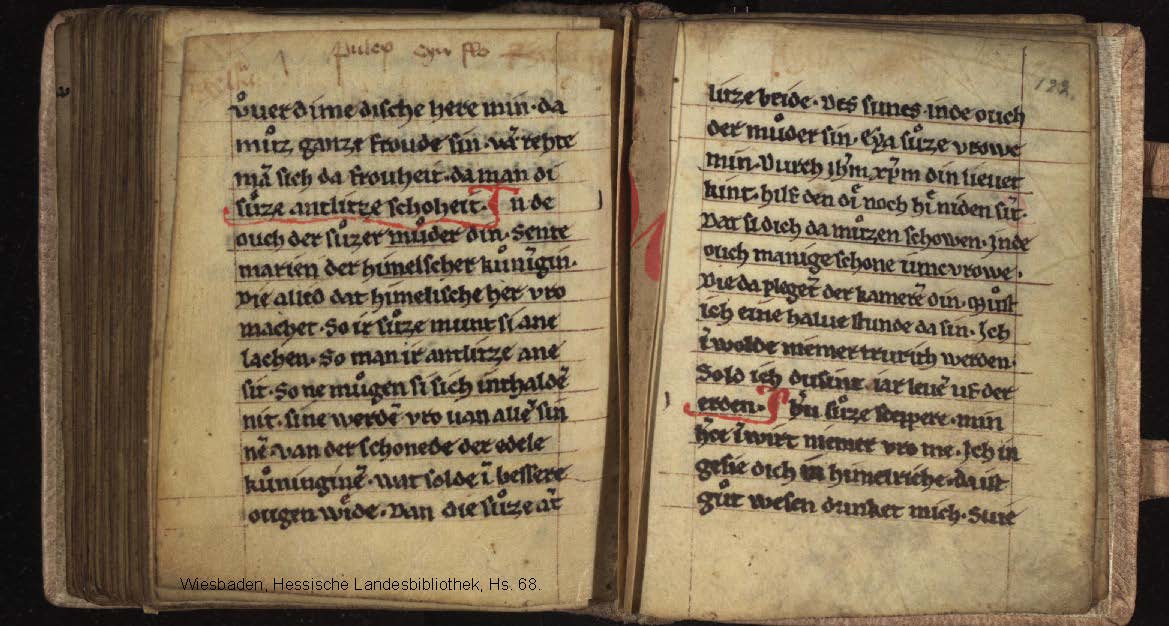 pulex eyn flo
vͦuer dime dische here min · da
můz ganze froude sin · wā rehte
mā sich da frouheit · da man di
sůze antlitze schoheit · In de
ouch der sůzer můder din · Sente
marien der himelscher kůnīgin ·
Die allid dat himelische her vro
machet · So ir sůze munt si ane
lachen · So man ir antlitze ane
sit · So ne můgen si sich inthaldē
nit · sine werdē vro uan allē sin
nē · van der schonede der edele
kůninginē · wat solde ī bessere
ougen wīde · Dan die sůze āt
122.
litze beide · des sunes · inde ouch
der můder sin · Eya sůze vrowe
min · Durch ih̄m xp̄m din lieuet
kint · hilf den dī noch hī niden sīt ·
Dat si dich da můzen schowen · Inde
ouch manige schone iuncvrowe ·
Die da plegēt der kamerē din · Můst
ich eine halue stunde da sin · Ich
ī wolde niemer trurich werden ·
Sold ich dusint iar leuē uf der
erden · Ih̄u sůze scheppere · min
h̄ce ī wirt niemer vro me · Ich in
gesie dich in himelriche · da ist
gůt wesen dunket mich · Swe
Wiesbaden, Hessische Landesbibliothek, Hs. 68.